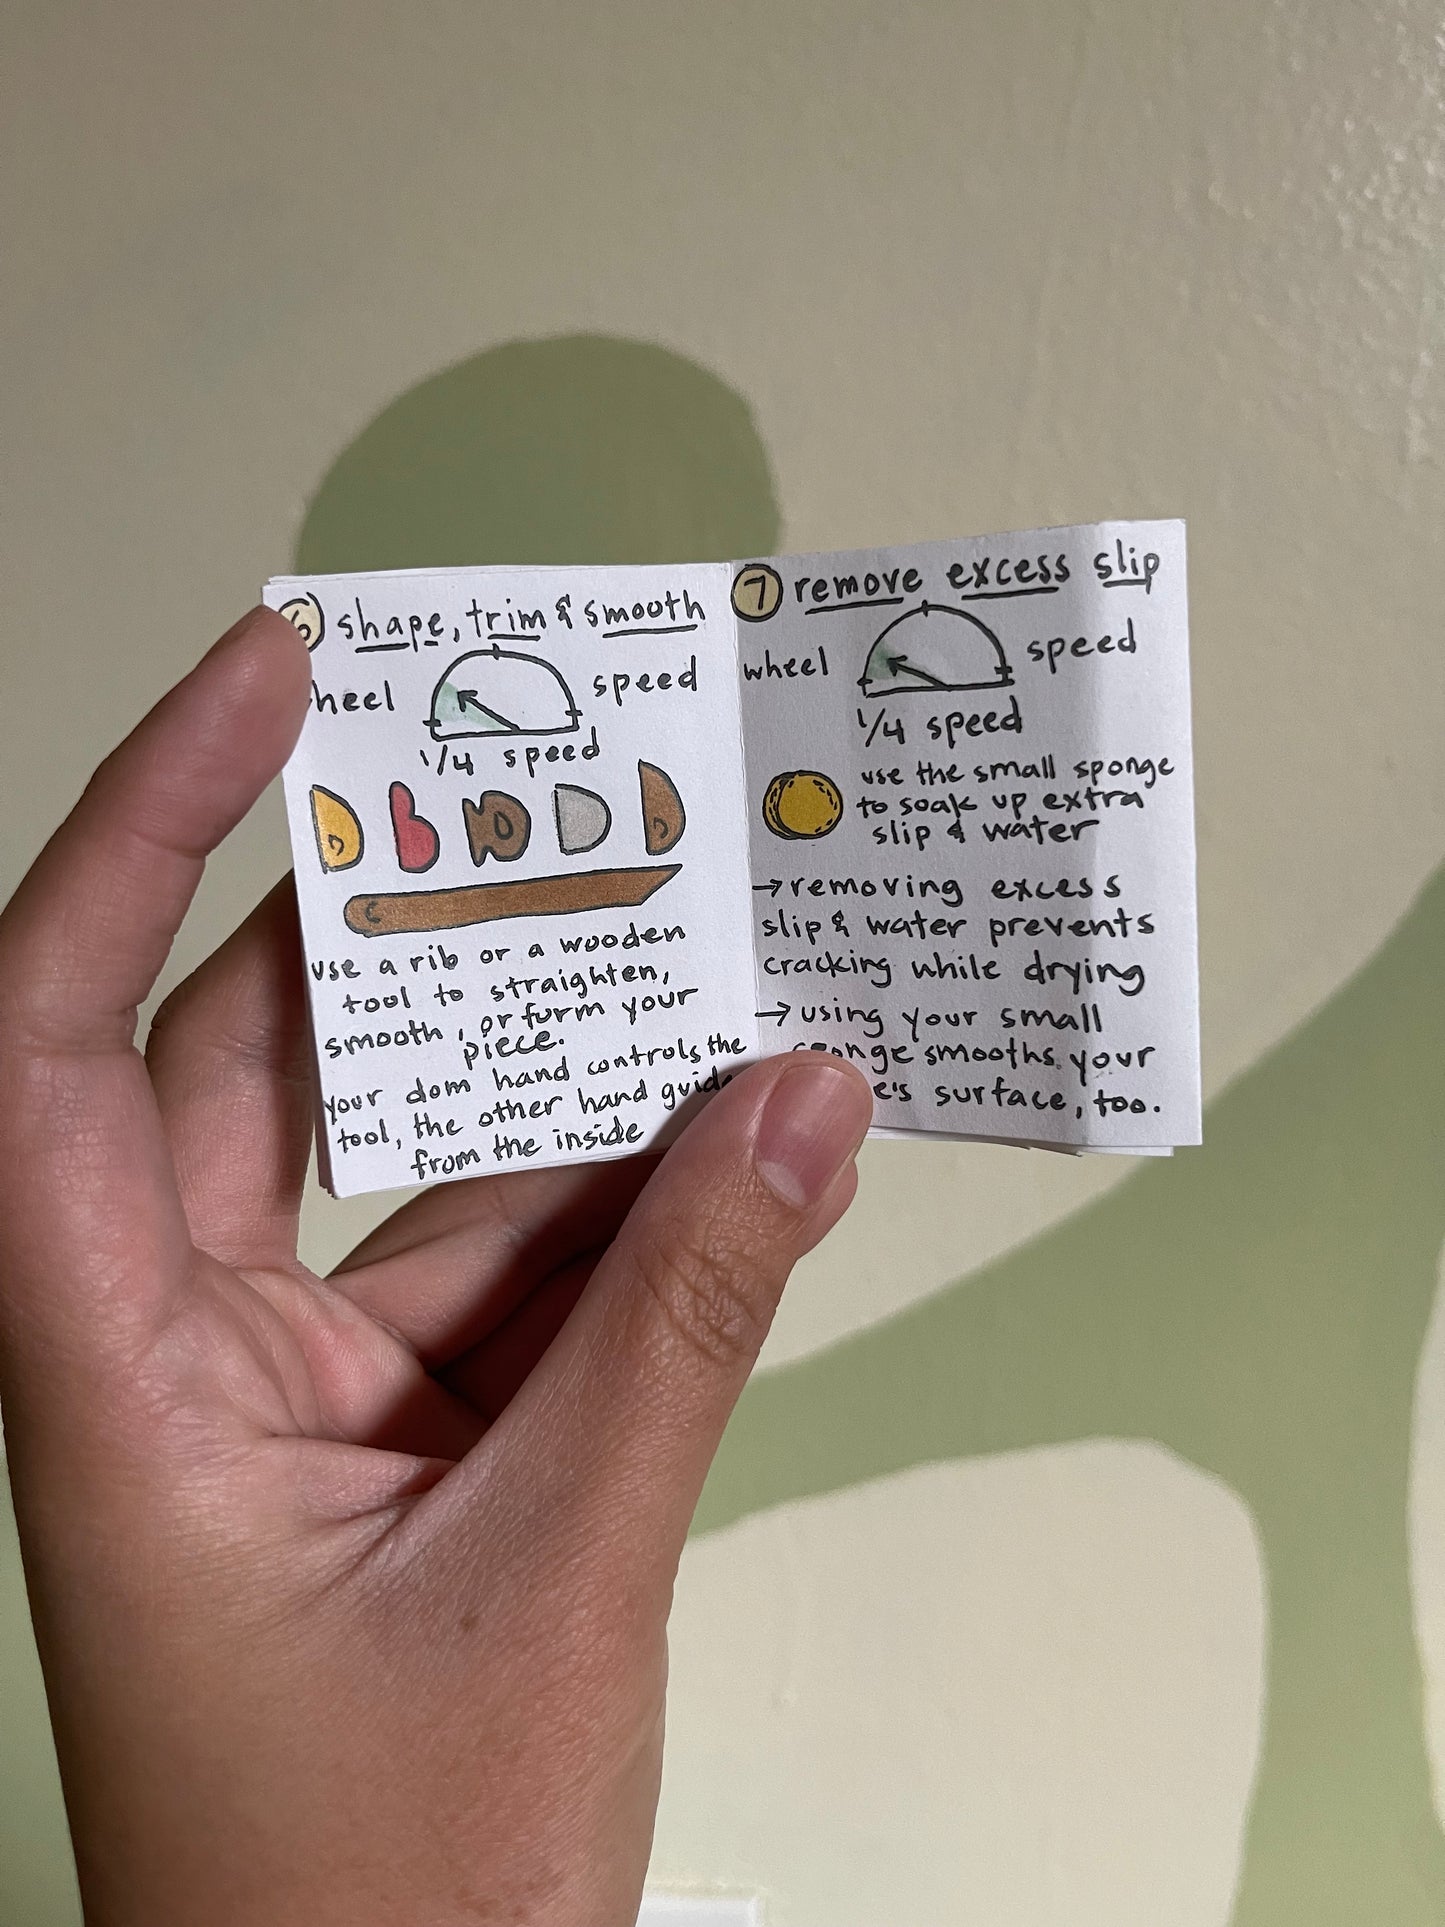 6 shape, trim & smooth
heel speed
1/4 speed
use a rib or a wooden
tool to straighten,
smooth, or form your
piece.
your dom hand controls the
tool, the other hand guide
from the inside
7 remove excess slip
wheel speed
1/4 speed
use the small sponge
to soak up extra
slip & water
→ removing excess
slip & water prevents
cracking while drying
→ using your small
sponge smooths your
e's surface, too.